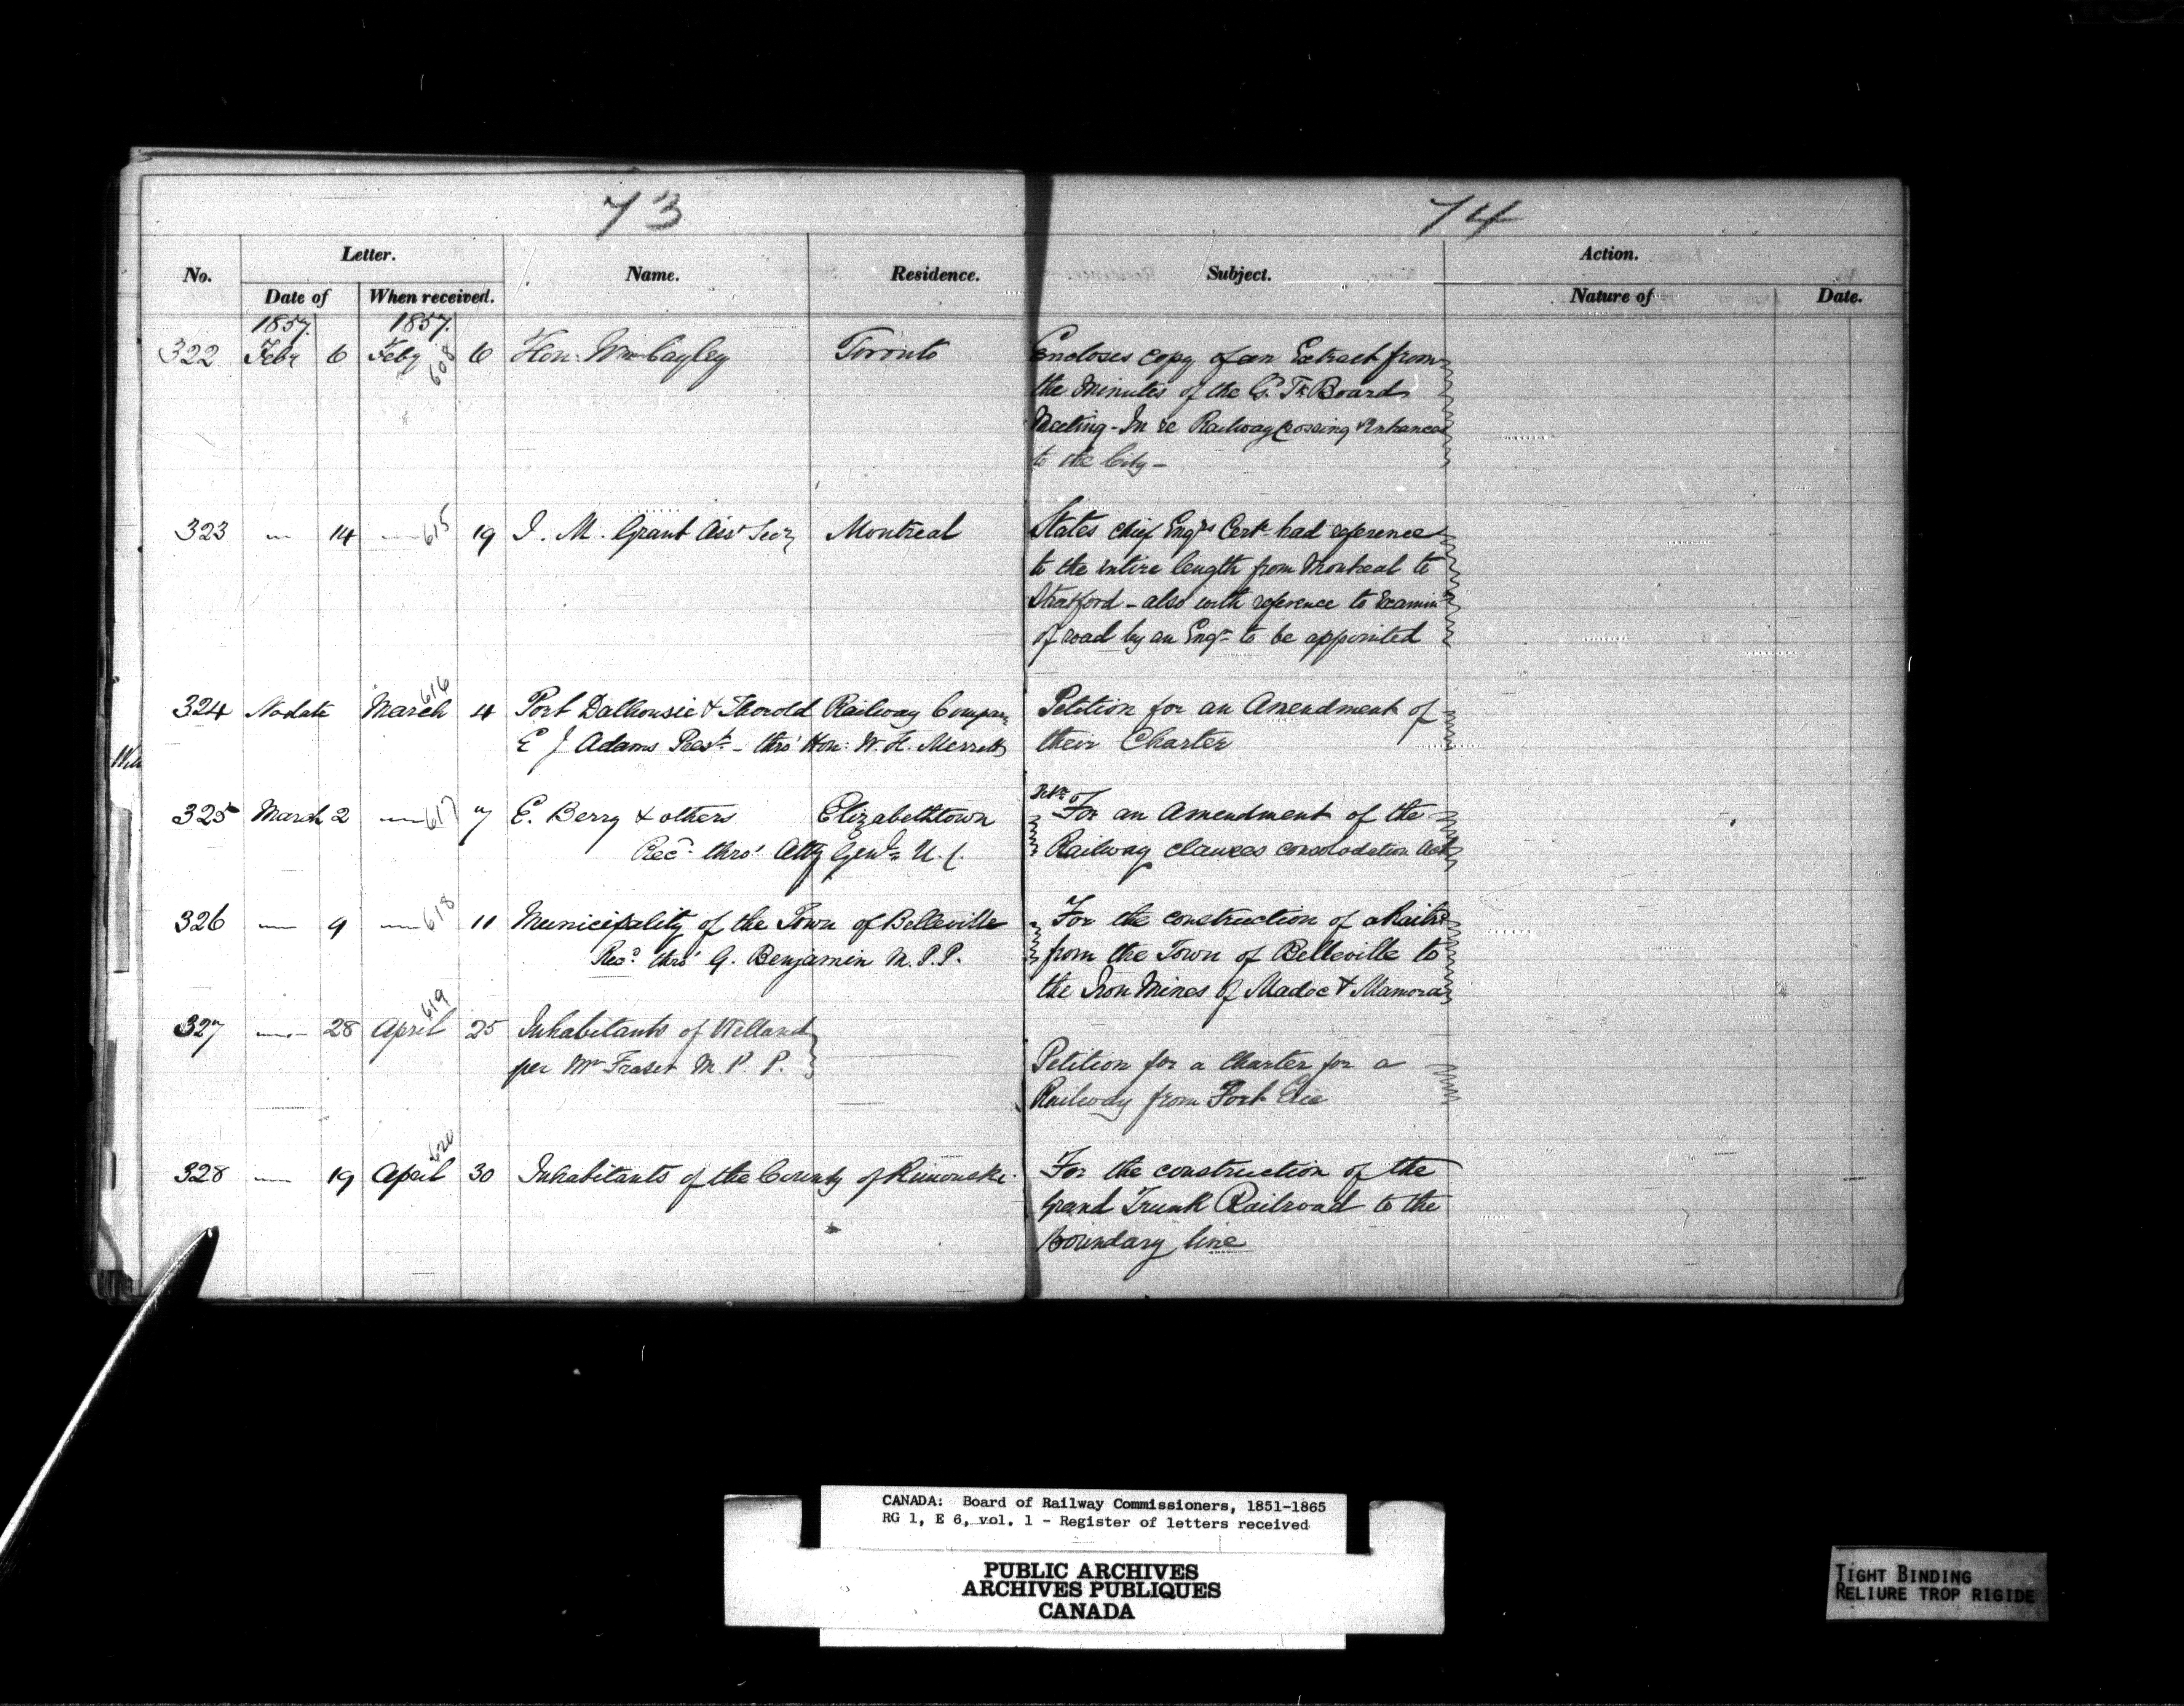 73
74
No.
Letter.
Name.
Residence.
Subject.
Action.
Date of
When received.
Nature of
Date.
1857.
1857.
322 Feby 6 Feby 608 6 Hon: Wm Cayley Toronto Encloses copy of an Extract from
the Minutes of the G. Tk Board
Meeting - In re Railway Crossing & Entrances
to the City -
323 — 14 — 615 19 J. M. Grant Asst Secy Montreal States Chief Engrs Cert had reference
to the entire length from Montreal to
Stratford - also with reference to Examinn
of road by an Engr to be appointed
324 No date March 616 4 Port Dalhousie & Thorold Railway Company Petition for an Amendment of
E J Adams Prest - thro' Hon: W. H. Merritt their Charter
325 March 2 — 617 7 E. Berry & others Elizabethtown For an Amendment of the
Recd thro' Atty Genl U. C. Railway clauses consolodation Act
326 — 9 — 618 11 Municipality of the Town of Belleville For the construction of a Railrd
Recd thro' G. Benjamin M.P.P. from the Town of Belleville to
the Iron Mines of Madoc & Mamora
327 — 28 April 619 25 Inhabitants of Welland
per Mr Fraser M. P. P. Petition for a Charter for a
Railway from Fort Erie
328 — 19 April 620 30 Inhabitants of the County of Rimouski. For the construction of the
Grand Trunk Railroad to the
Boundary line
CANADA: Board of Railway Commissioners, 1851-1865
RG 1, E 6, vol. 1 - Register of letters received
PUBLIC ARCHIVES
ARCHIVES PUBLIQUES
CANADA
TIGHT BINDING
RELIURE TROP RIGIDE